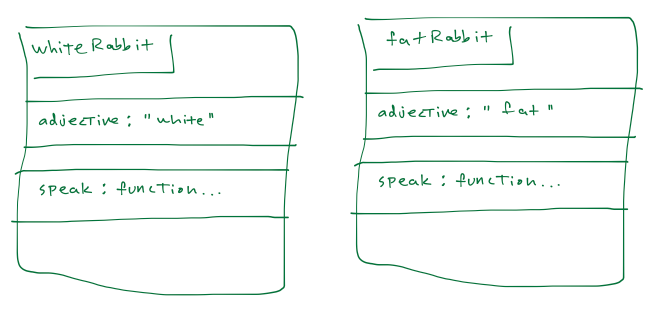 whiteRabbit
adjective : "white"
speak : function...
fatRabbit
adjective : "fat"
speak : function...